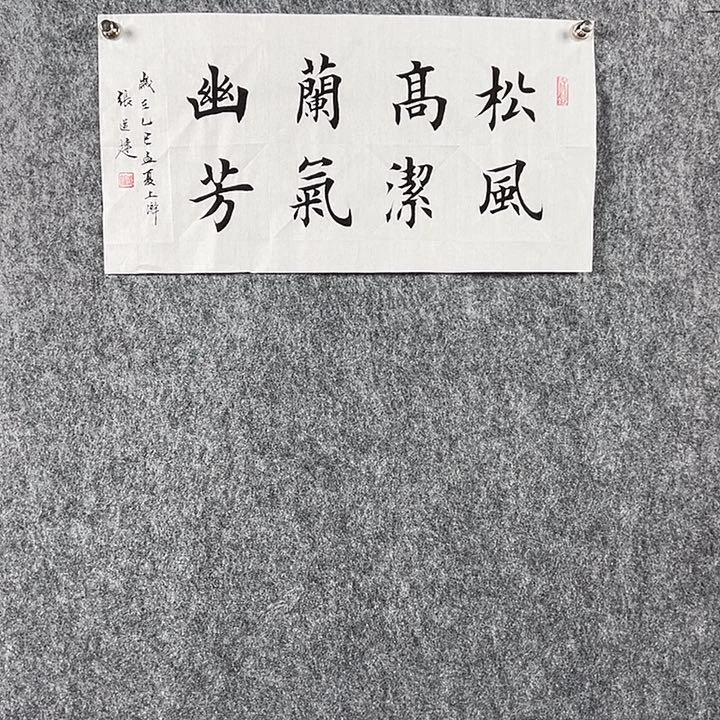 松風
高潔
蘭氣
幽芳
歲在乙巳孟夏上澣
張道